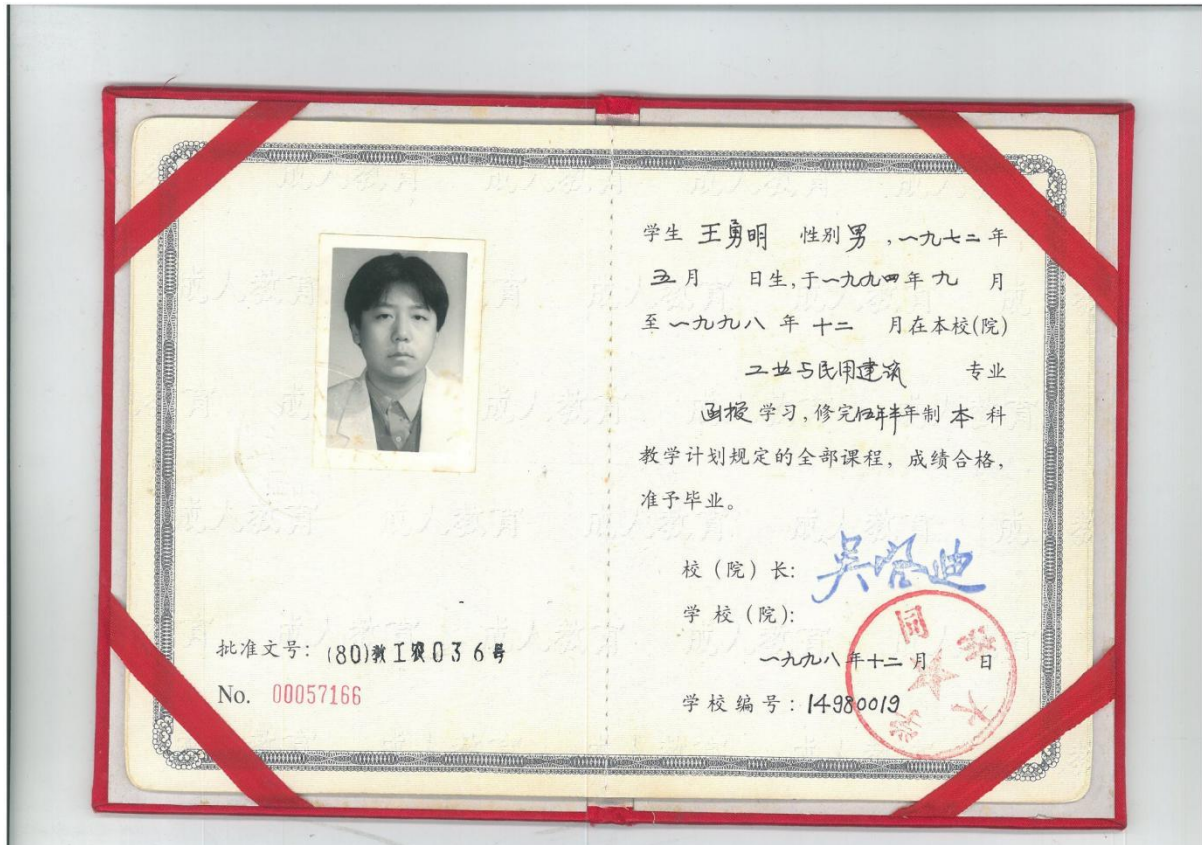 批准文号：(80)教工农036号
No. 00057166
学生 王勇明 性别 男，一九七二年
五月 日生，于一九九四年 九 月
至 一九九八 年 十二 月在本校(院)
工业与民用建筑 专业
函授 学习，修完伍年半年制 本 科
教学计划规定的全部课程，成绩合格，
准予毕业。
校（院）长：吴启迪
学 校（院）：
同济大学
一九九八年十二月 日
学校编号：14980019
成人教育